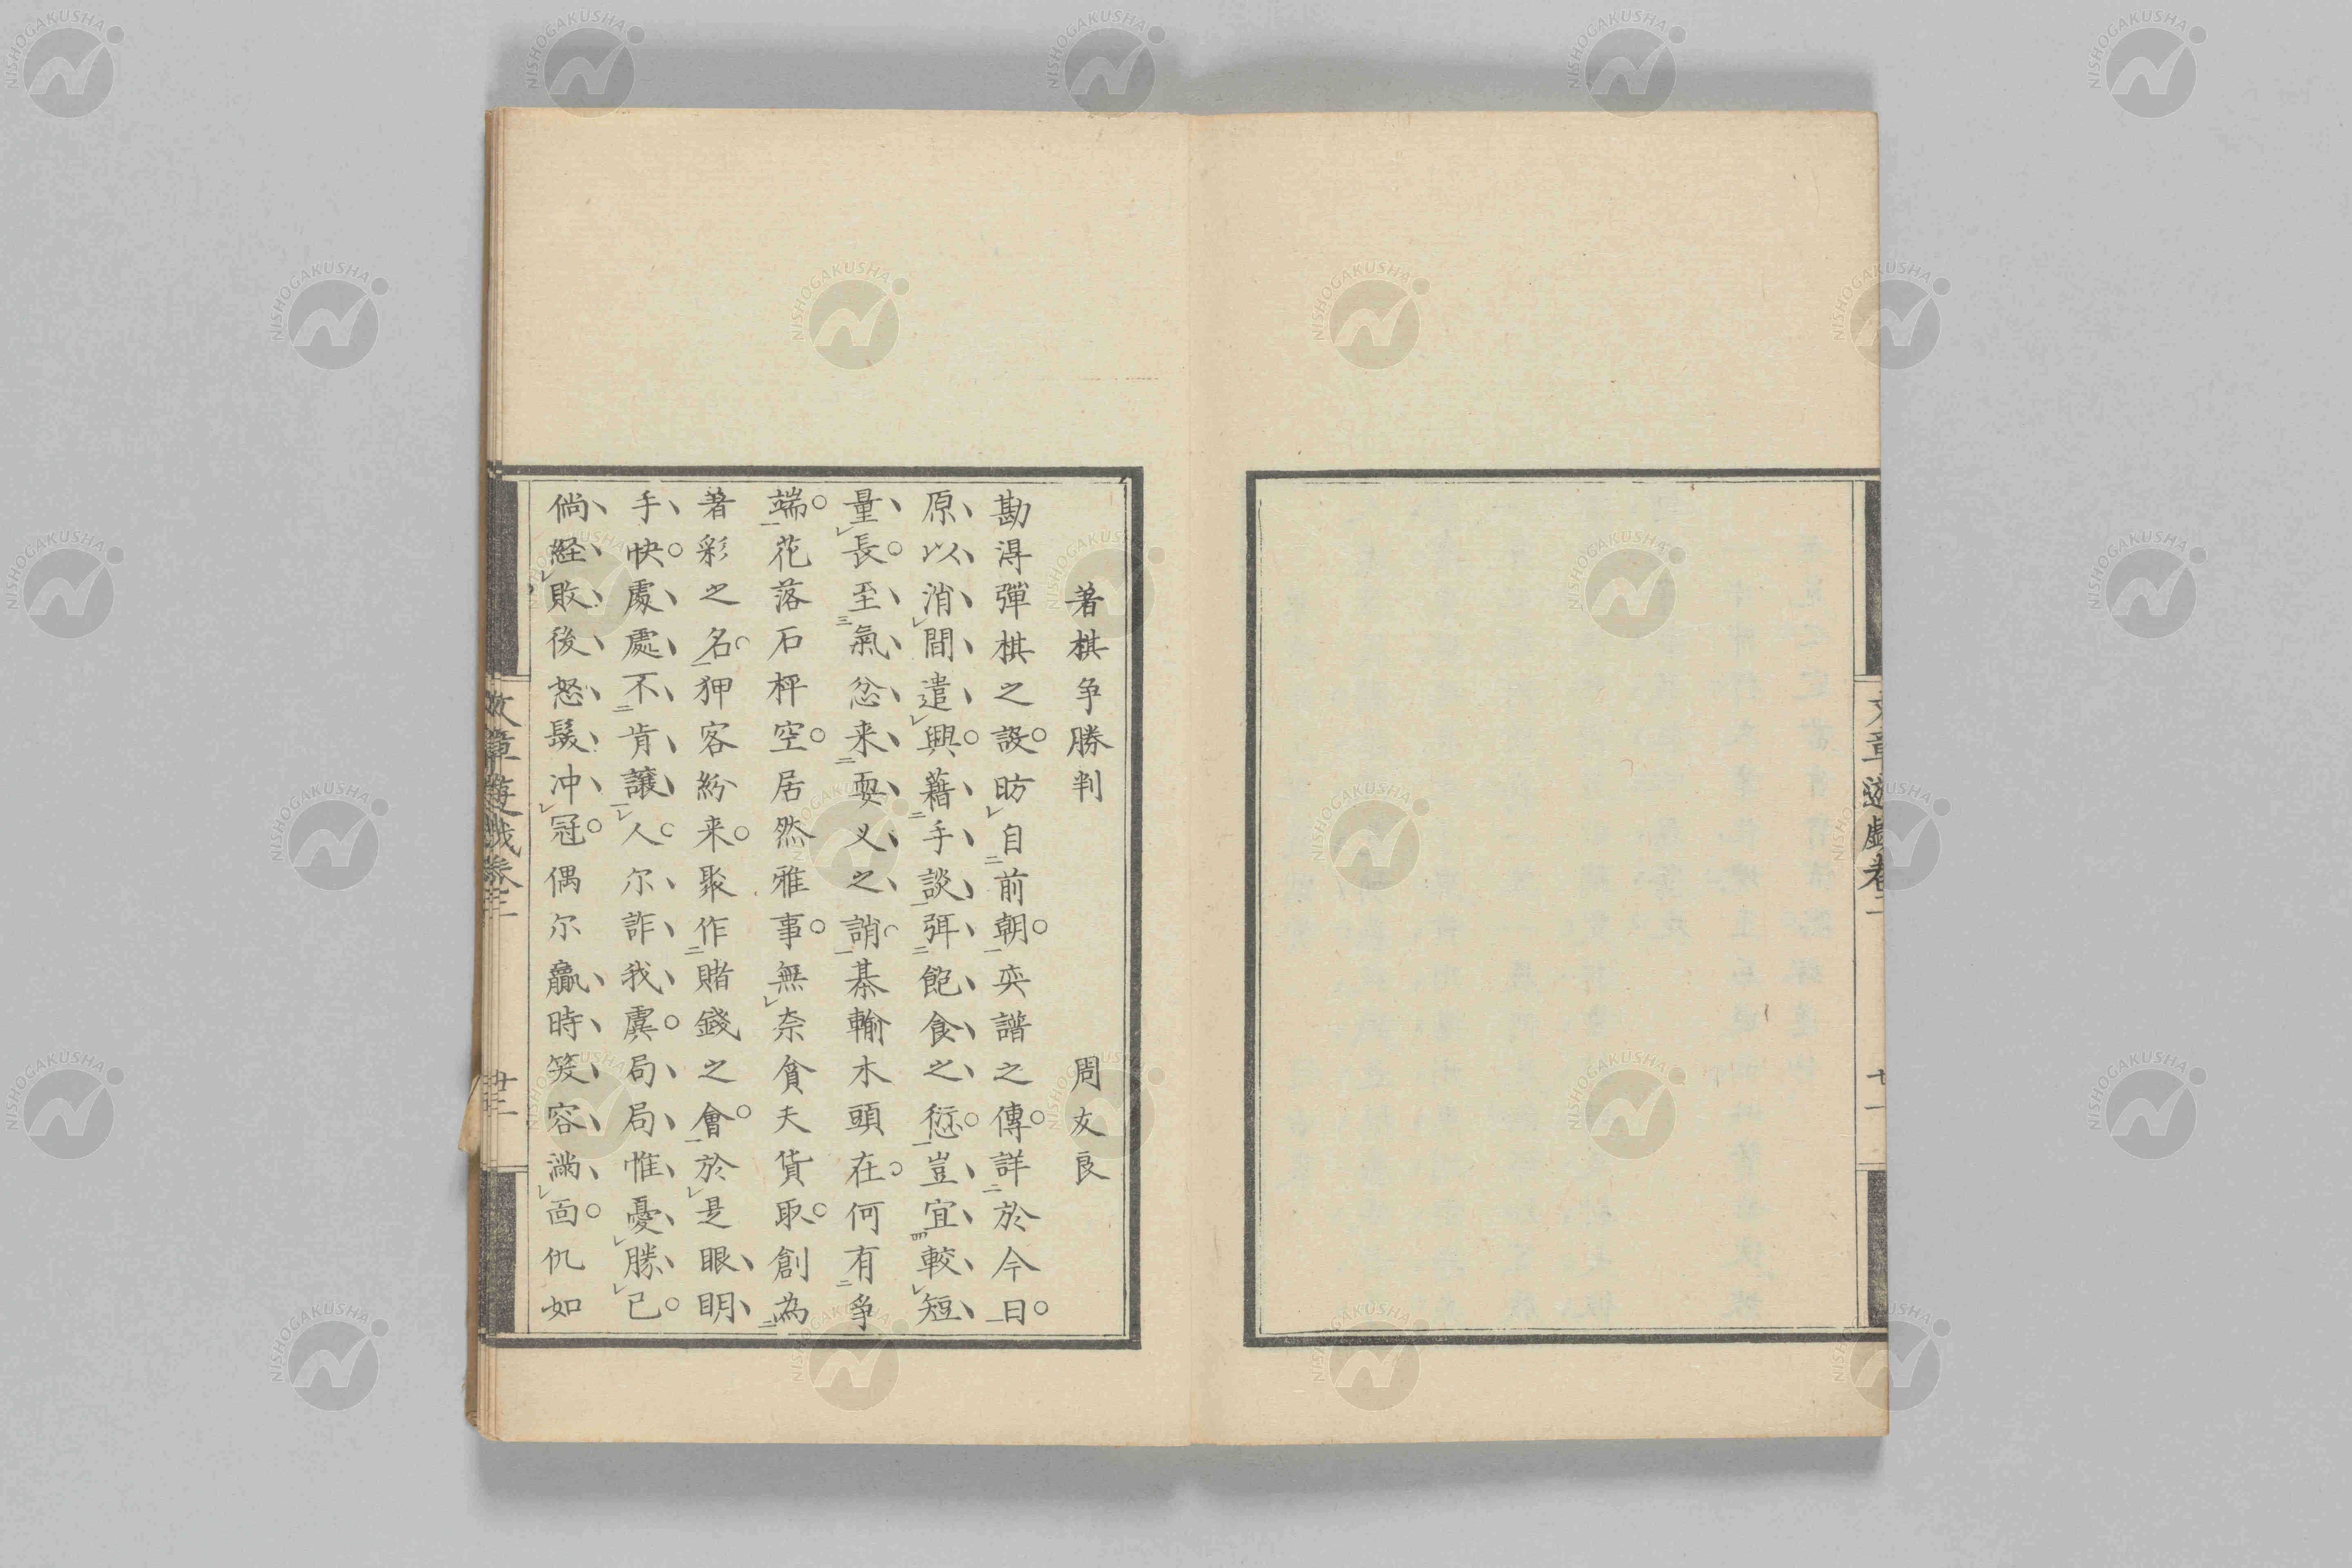 文章遊戯巻二
廿一
著棋争勝判　周友良
勘淂彈棋之設。昉自前朝。奕譜之傳。詳於今日。
原以消間遣興。藉手談弭飽食之愆。豈宜較短
量長。至氣忿来耍乂之誚。棊輸木頭在。何有爭
端。花落石枰空。居然雅事。無奈貪夫貨取。創為
著彩之名。狎客紛来。聚作賭錢之會。於是眼明
手快。處處不肯讓人。尔詐我虞。局局惟憂勝已。
倘経敗後怒髮冲冠。偶尔贏時笑容滿面。仇如
文章遊戯巻二
NISHOGAKUSHA